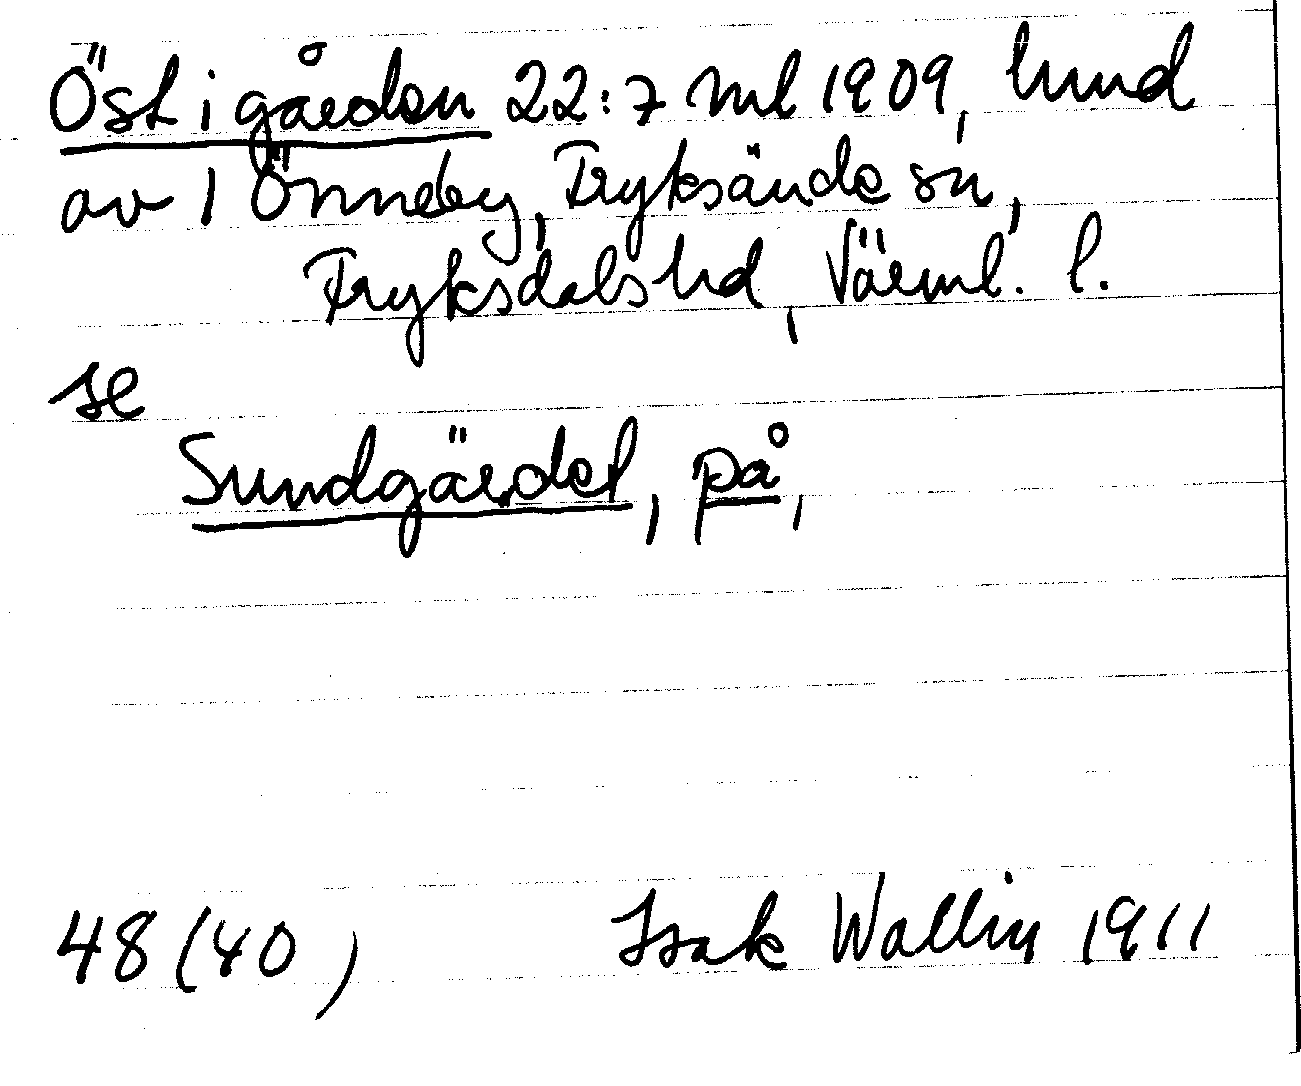 Öst i gården 22:7 ml 1909, lund
av 1 Önneby, Fryksände sn,
Fryksdals hd, Värml. l.
se
Sundgärdet, på,
48 (40) Isak Wallin 1911